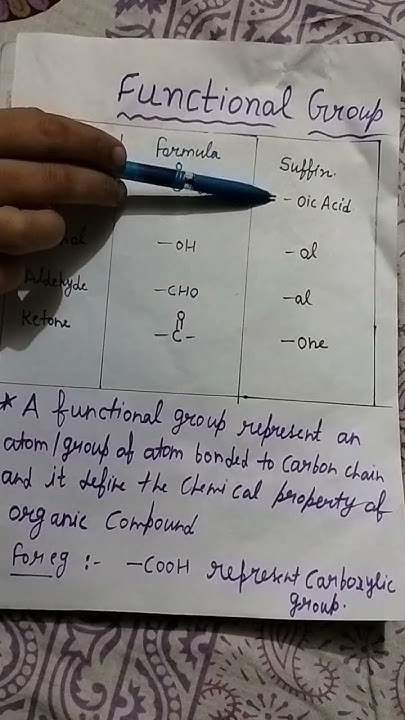 Functional Group
Formula Suffin.
O - Oic Acid
—OH - ol
Aldehyde —CHO -al
Ketone O
-C- -One
* A functional group represent an
atom/group of atom bonded to Carbon chain
and it define the Chemical property of
organic Compound
For eg :- —COOH represent Carboxylic
group.